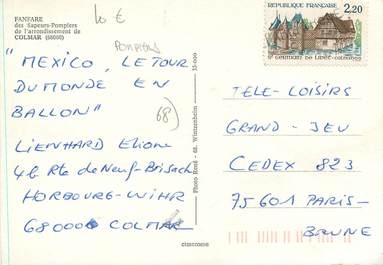 FANFARE
des Sapeurs-Pompiers
de l'arrondissement de
COLMAR (68000)
10 €
POMPIERS
"MEXICO, LE TOUR
DU MONDE EN
BALLON"
68)
LIENHARD Eliane
4b Rte de Neuf-Brisach
HORBOURG-WIHR
68000 COLMAR
Photo René - 68. Wintzenheim
cimcrome
REPUBLIQUE FRANÇAISE
2,20
ST GERMAIN DE LIVET - CALVADOS
TELE-LOISIRS
GRAND-JEU
CEDEX 823
75601 PARIS-
BRUNE